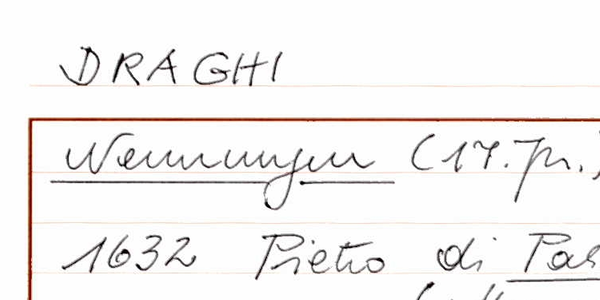 DRAGHI
Nennungen (17. Jh.)
1632 Pietro di Pas